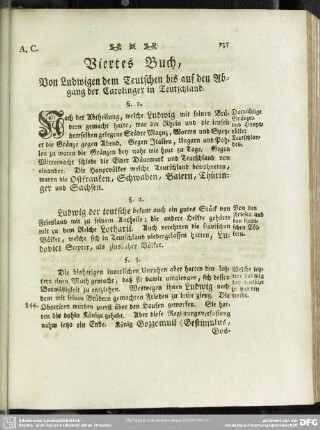 A. C.
Viertes Buch,
Von Ludwigen dem Teutschen bis auf den Ab-
gang der Carolinger in Teutschland.
§. 1.
Nach der Abtheilung, welche Ludwig mit seinen Brü-
dern gemacht hatte, war der Rhein und die jenseit
desselben gelegene Städte Maynz, Worms und Spey-
er die Gränze gegen Abend. Gegen Italien, Ungarn und Poh-
len zu waren die Gränzen bey nahe wie heut zu Tage. Gegen
Mitternacht schiede die Eider Dänemark und Teutschland von
einander. Die Hauptvölker welche Teutschland bewohneten,
waren die Ostfranken, Schwaben, Baiern, Thürin-
ger und Sachsen.
§. 2.
Ludwig der teutsche bekam auch ein gutes Stück von
Friesland mit zu seinem Antheile; die andere Helfte gehörte
mit zu dem Reiche Lotharii. Auch verehrten die slavischen
Völker, welche sich in Teutschland niedergelassen hatten, Lu-
dovici Scepter, als zinsbahre Völker.
Von den
Friesen und
den slavi-
schen Völ-
kern.
§. 3.
Die bisherigen innerlichen Unruhen aber hatten den letz-
tern einen Muth gemacht, daß sie damit umgiengen, sich dessen
Botmäßigkeit zu entziehen. Weswegen ihnen Ludwig nach
dem mit seinen Brüdern gemachten Frieden zu leibe gieng. Die
844. Obotriten wurden zuerst über den Haufen geworfen. Sie hat-
ten bis dahin Könige gehabt. Aber diese Regierungsverfassung
nahm jetzo ein Ende. König Gozzomuil (Gestimulus,
Gos-